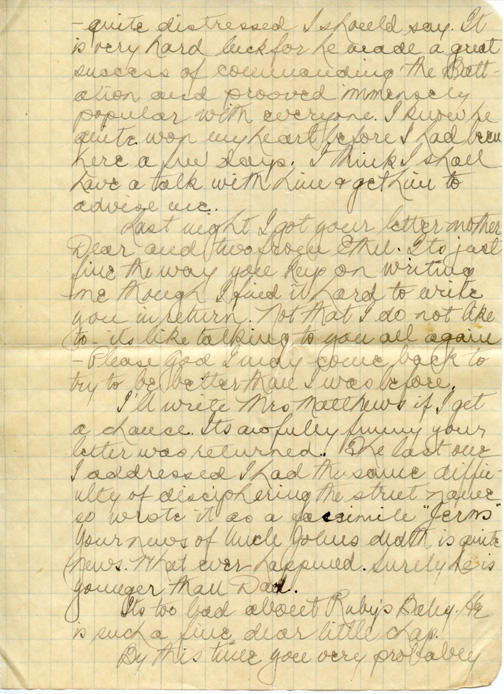 - quite distressed I should say. It
is very hard luck for he made a great
success of commanding the Batt-
ation and prooved immensely
popular with everyone. I know he
quite won my heart before I had been
here a few days. I think I shall
have a talk with him & get him to
advise me.
Last night I got your letter mother
Dear and two from Ethel. Its just
fine the way you keep on writing
me though I find it hard to write
you in return. Not that I do not like
to - its like talking to you all again
- Please God I may come back to
try to be better than I was before.
I'll write Mrs Matthews if I get
a chance. Its awfully funny your
letter was returned. The last one
I addressed I had the same diffic-
ulty of disciphering the street name
so wrote it as a facimile "Jerms"
Your news of Uncle Johns death is quite
news. What ever happened. Surely he is
younger than Dad.
Its too bad about Ruby's Baby. He
is such a fine, dear little chap.
By this time you very probabley